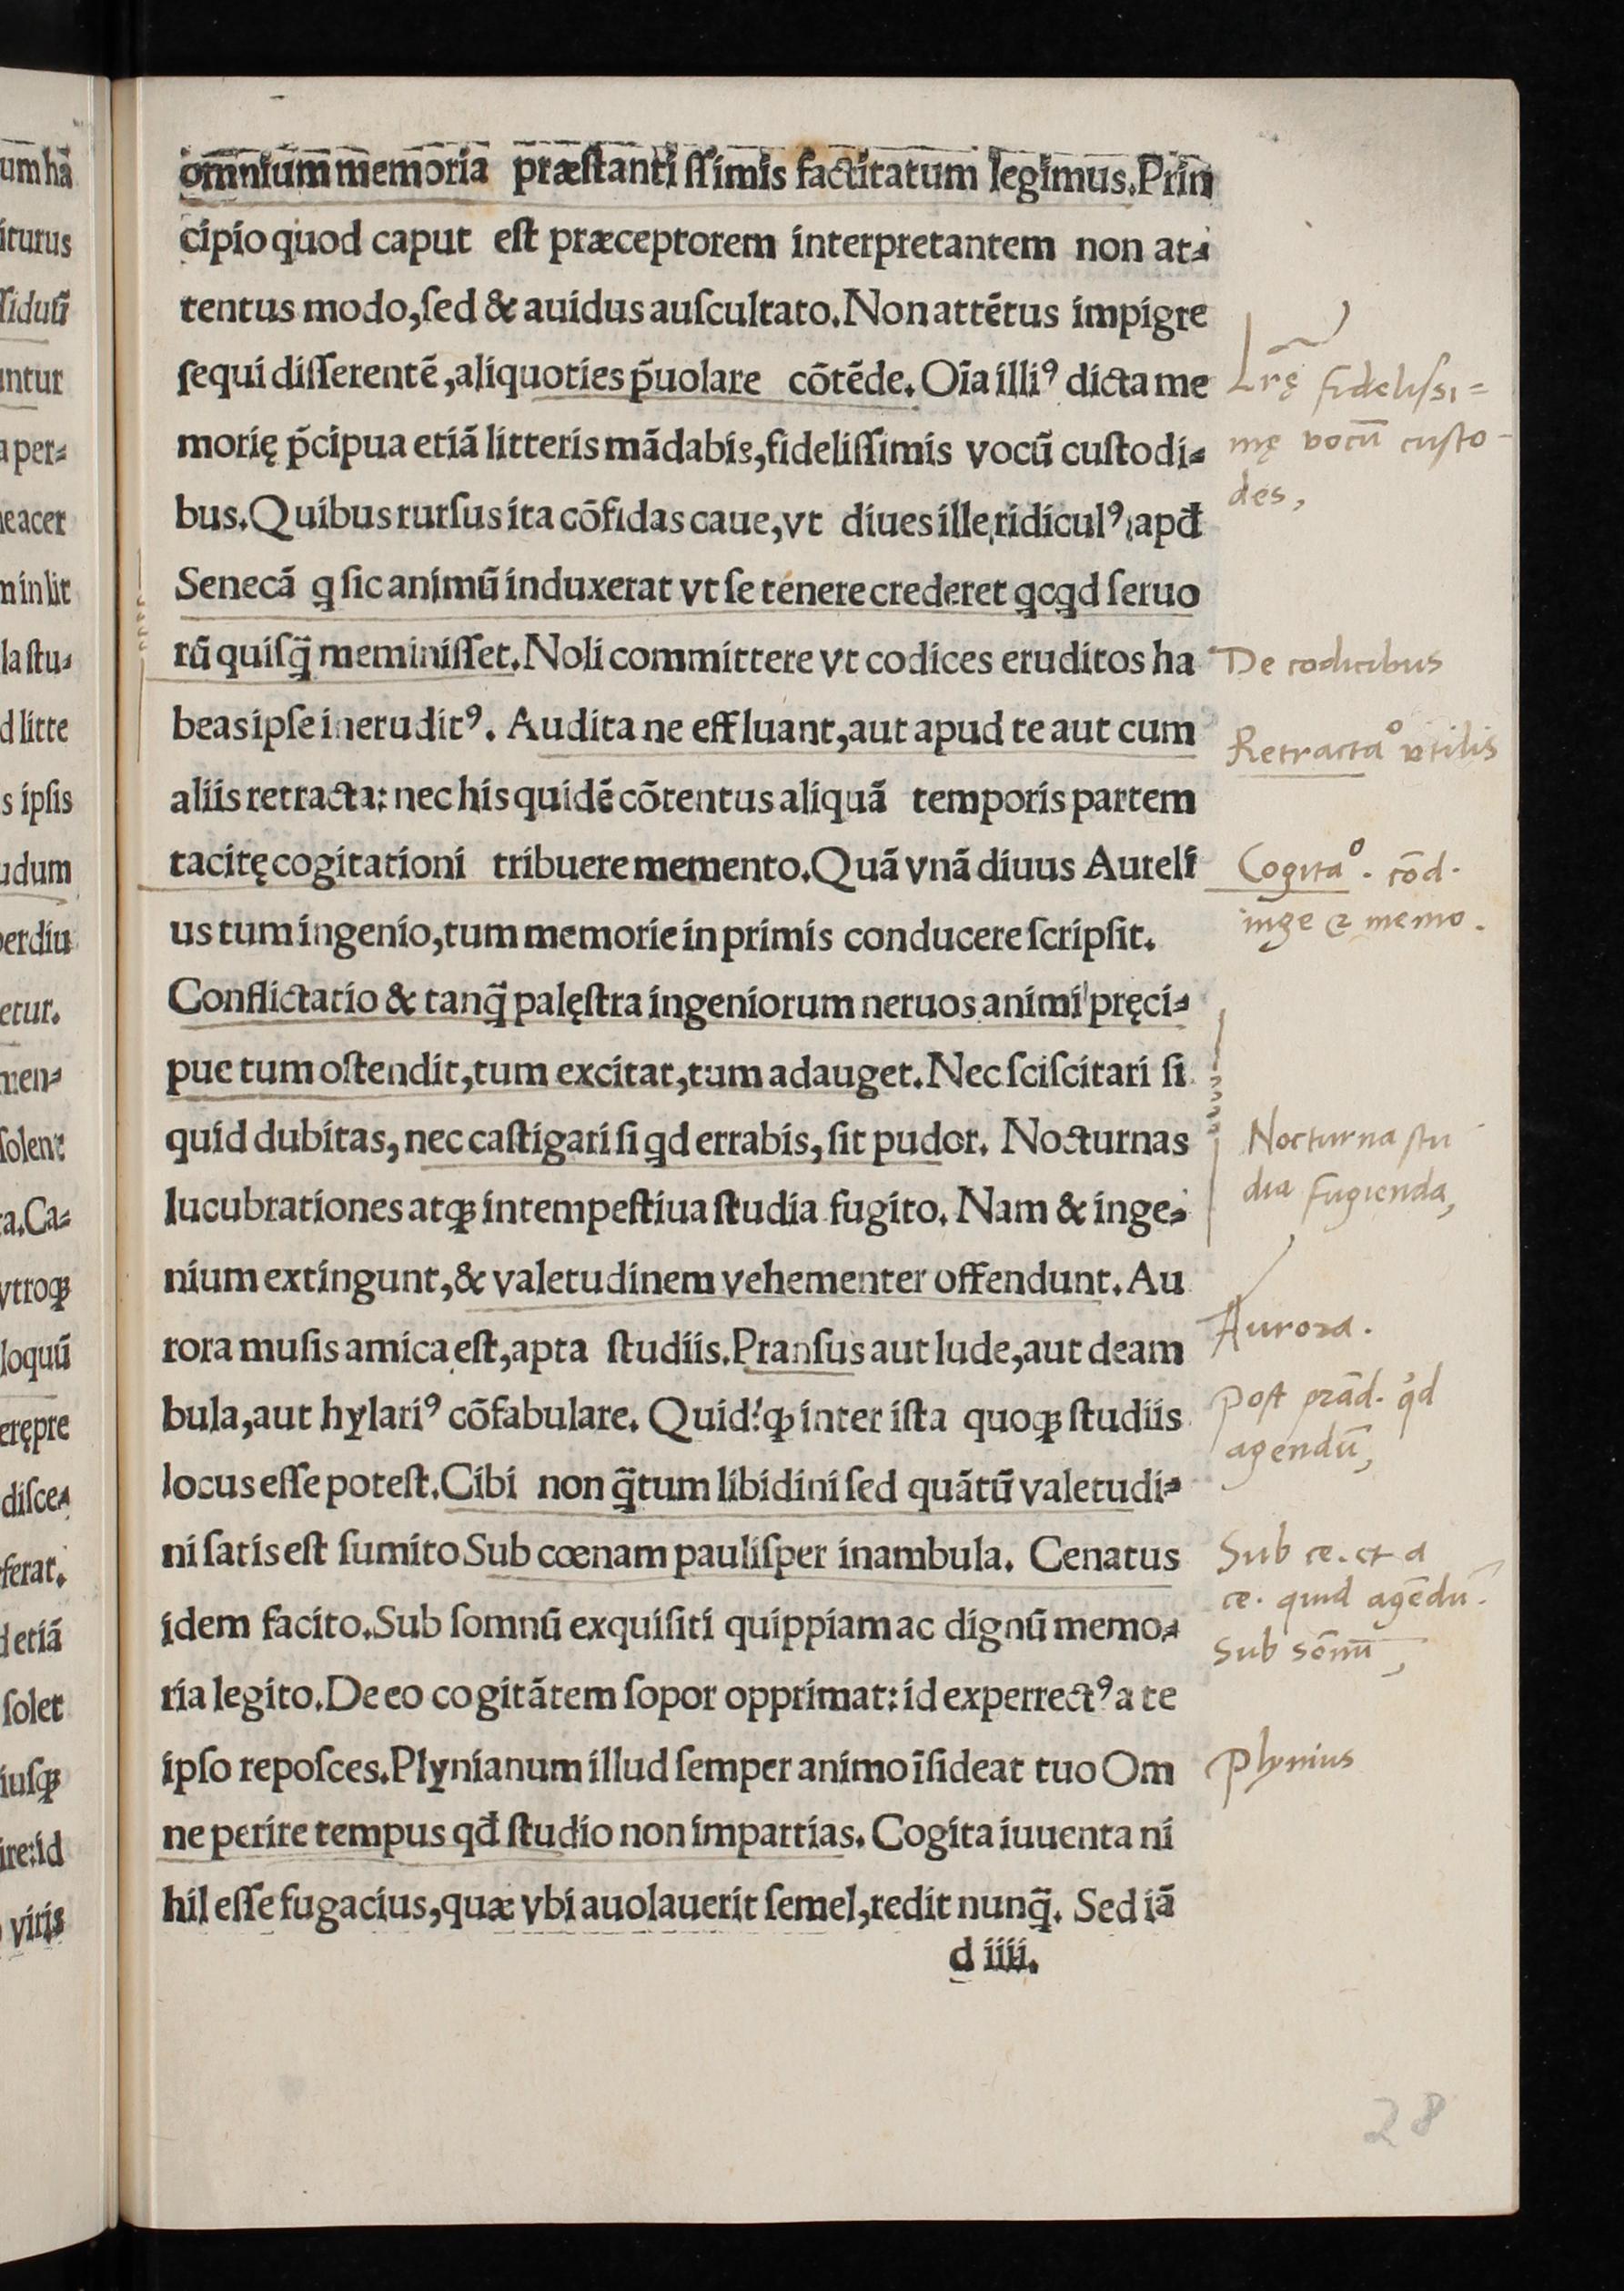 omnium memoria præstantissimis factitatum legimus. Prin
cipio quod caput est præceptorem interpretantem non at⸗
tentus modo, sed & auidus auscultato. Non attētus impigre
sequi disserentē, aliquoties p̄uolare cōtēde. Oīa illiꝰ dicta me
morię p̄cipua etiā litteris mādabis, fidelissimis vocū custodi⸗
bus. Quibus rursus ita cōfidas caue, vt diues ille ridiculꝰ apđ
Senecā q sic animū induxerat vt se tenere crederet qcqd seruo
rū quisq̃ meminisset. Noli committere vt codices eruditos ha
beas ipse ineruditꝰ. Audita ne effluant, aut apud te aut cum
aliis retracta: nec his quidē cōtentus aliquā temporis partem
tacitę cogitationi tribuere memento. Quā vnā diuus Aureli
us tum ingenio, tum memorie in primis conducere scripsit.
Conflictatio & tanq̃ palęstra ingeniorum neruos animi pręci⸗
pue tum ostendit, tum excitat, tum adauget. Nec sciscitari si
quid dubitas, nec castigari si qd errabis, sit pudor. Nocturnas
lucubrationes atqꝫ intempestiua studia fugito. Nam & inge⸗
nium extingunt, & valetudinem vehementer offendunt. Au
rora musis amica est, apta studiis. Pransus aut lude, aut deam
bula, aut hylariꝰ cōfabulare. Quid? qꝫ inter ista quoqꝫ studiis
locus esse potest. Cibi non q̃tum libidini sed quātū valetudi⸗
ni satis est sumito Sub cœnam paulisper inambula. Cenatus
idem facito. Sub somnū exquisiti quippiam ac dignū memo⸗
ria legito. De eo cogitātem sopor opprimat: id experrectꝰ a te
ipso reposces. Plynianum illud semper animo īsideat tuo Om
ne perire tempus qđ studio non impartias. Cogita iuuenta ni
hil esse fugacius, quæ vbi auolauerit semel, redit nunq̃. Sed iā
d iiii.
Lr̄ę fidelissi⸗
mę vocū custo-
des,
De codicibus
Retractaᵒ vtilis
Cogitaᵒ. cōd.
inge & memo.
Nocturna stu
dia fugienda,
Aurora.
post prād. qd
agendū,
Sub ce. et a
ce. quid agēdū.
Sub sōnū,
Plynius
28
um hā
iturus
ssidusī
untur
a per⸗
ne acer
m in lit
la stu⸗
d litte
s ipsis
udum
perdiu
etur.
men⸗
solent
ta. Ca⸗
vtroqꝫ
loquū
erępre
disce⸗
ferat.
d etiā
solet
iusqꝫ
ire: id
viris